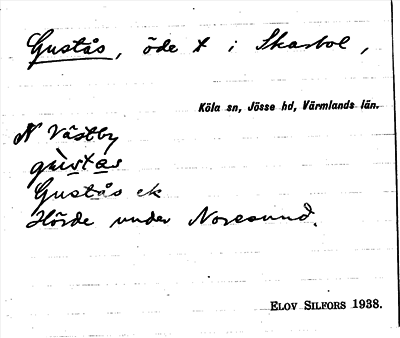 Gustås, öde t i Skarbol,
Köla sn, Jösse hd, Värmlands län.
N Västby
gùstas
Gustås ek
Hörde under Noresund.
ELOV SILFORS 1938.